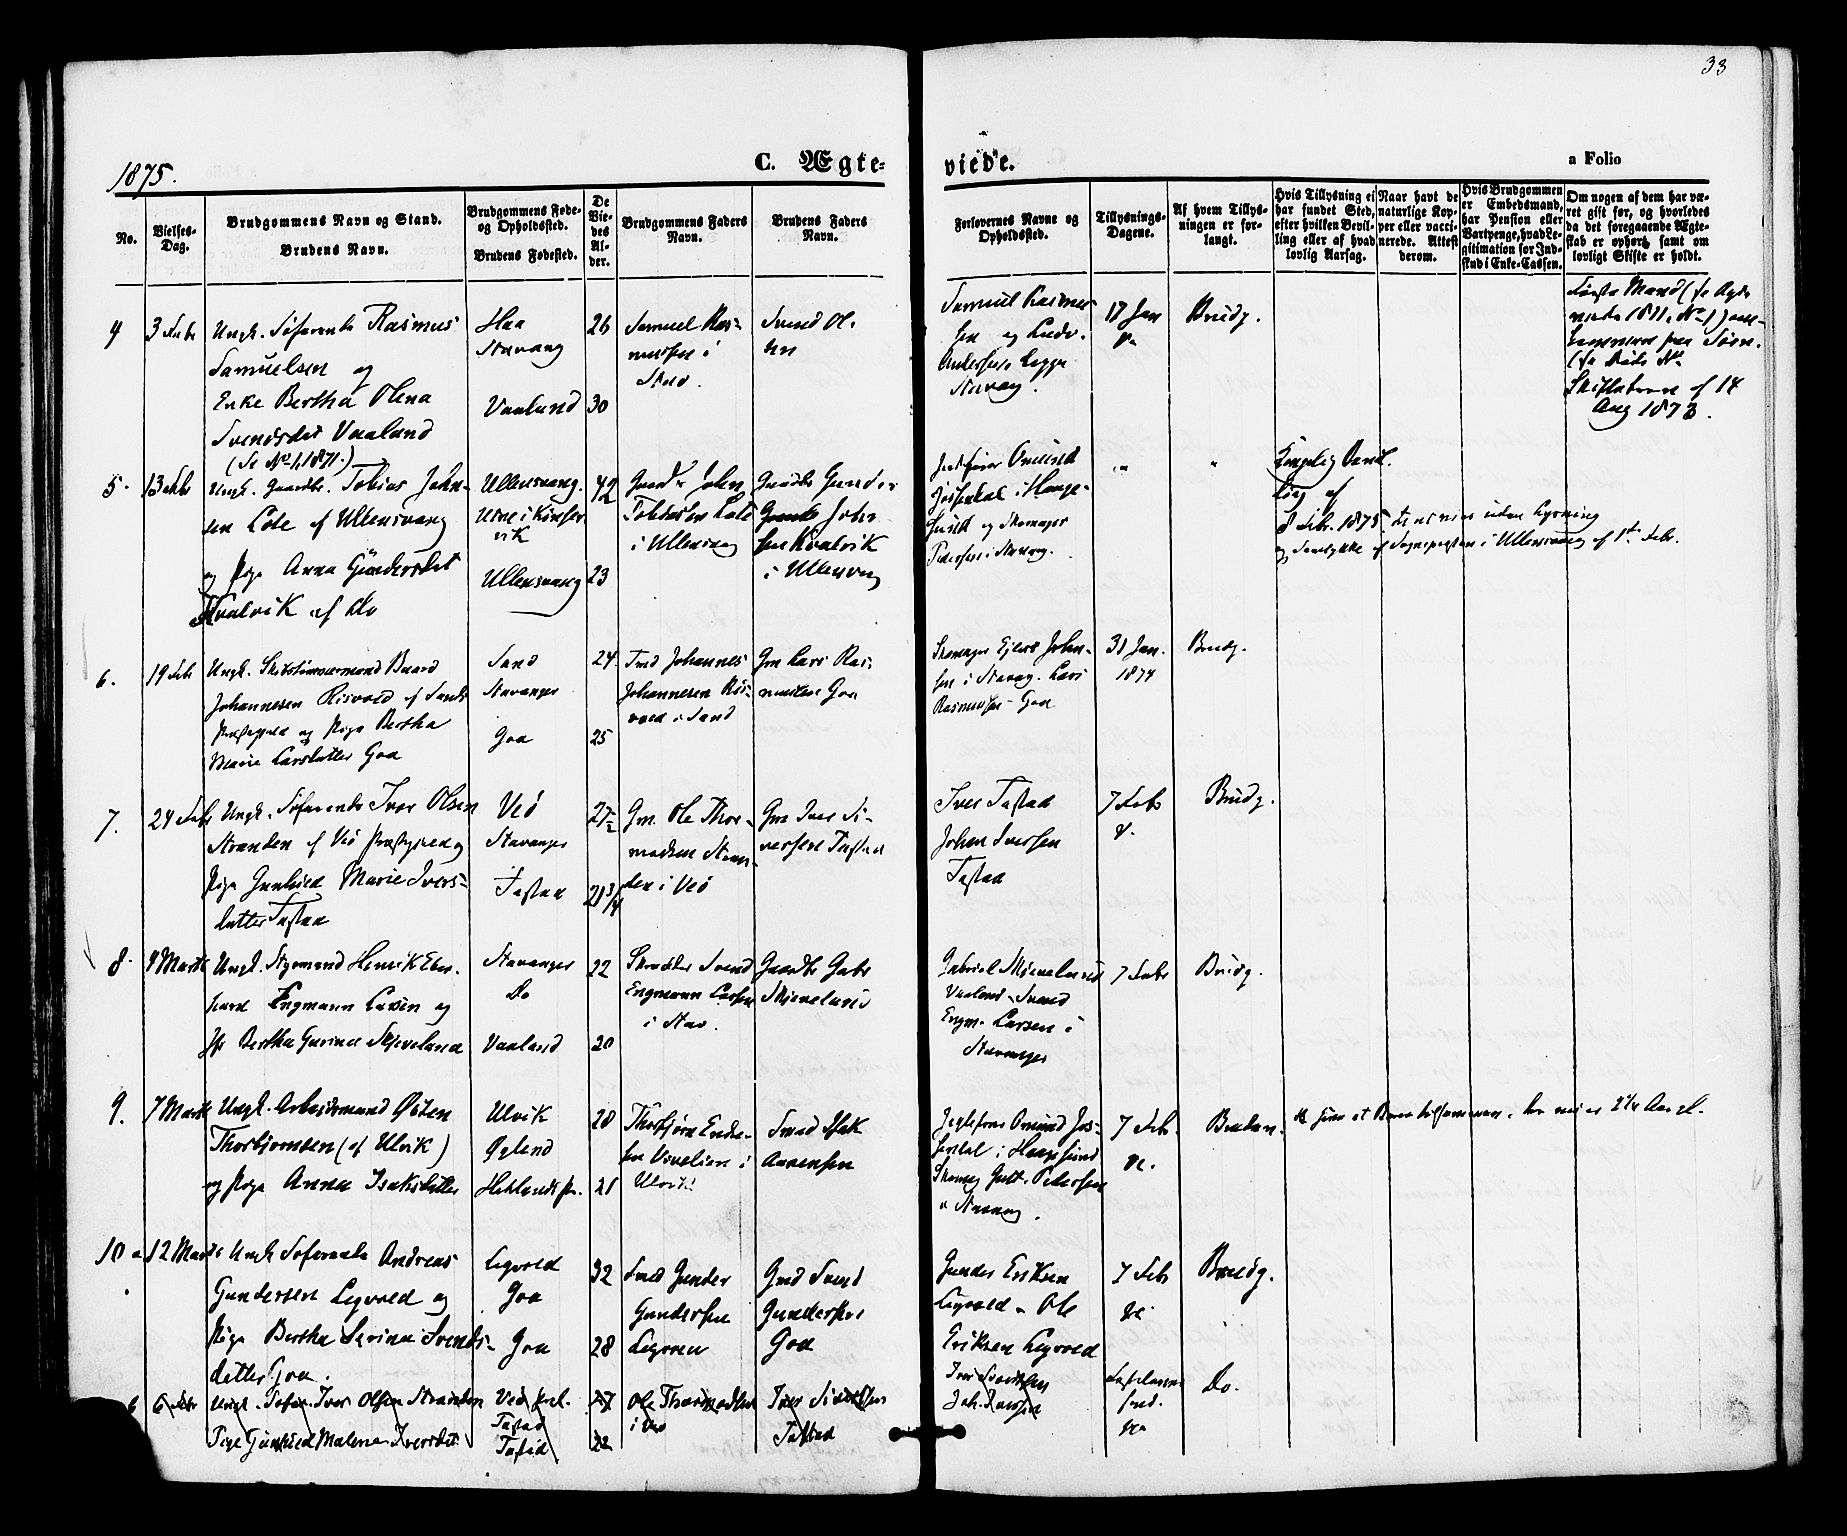 33
1875.
C. Ægte-
viede.
a Folio
No.
Vielses-
Dag.
Brudgommens Navn og Stand.
Brudens Navn.
Brudgommens Føde-
og Opholdssted.
Brudens Fødested.
De
Vie-
des
Al-
der.
Brudgommens Faders
Navn.
Brudens Faders
Navn.
Forlovernes Navne og
Opholdssted.
Tillysnings-
Dagene.
Af hvem Tillys-
ningen er for-
langt.
Hvis Tillysning ei
har fundet Sted,
efter hvilken Bevil-
ling eller af hvad
lovlig Aarsag.
Naar havt de
naturlige Kop-
per eller vacci-
nerede. Attest
derom.
Hvis Brudgommen
er Embedsmand,
har Pension eller
Vartpenge, hvad Le-
gitimation for Ind-
skud i Enke-Cassen.
Om nogen af dem har væ-
ret gift før, og hvorledes
da det foregaaende Ægte-
skab er ophørt, samt om
lovligt Skifte er holdt.
4
3 Febr
Ungk. Søfarende Rasmus
Samuelsen og
Enke Bertha Olena
Svendsdat Vaaland
(Se No 1, 1871.)
Haa
Stavang
Vaaland
26
30
Samuel Ras-
mussen i
Stav.
Svend Ol-
sen
Samuel Rasmus-
sen og Ludv.
Andersens
Stavang.
17 Jan
Brudg.
Første Mand (se Ægte
viede 1871, No 1) om-
kommen paa Søen.
(se Døde No
Skifteb af 14
Aug 1873.
5.
13 Febr
Ungk. Gaardbr. Tobias John-
sen Lote af Ullensvang
og Pige Anna Gundersdat
Kvalvik af Do
Ullensvang.
Utne i Kinser
vik
Ullensvang
42
23
Gaardbr John
Tobiassen Lote
i Ullensvang
Gaardbr Gunder
John
sen Kvalvik
i Ullensvang
Omund
Jøssendal i Hauge-
sund og Skomager
Pedersen i Stavang.
"
"
Kongelig Bevil-
ling af
8 Febr. 1875 uden Lysning
og Samtykke af Sognepresten i Ullensvang af 1st Febr.
6.
19 Feb
Ungk. Skibstømmermand Baard
Johannesen Risvold af Sands
Præstegjeld og Pige Bertha
Marie Larsdatter Goa
Sand
Stavanger
Goa
24
25
Johannes
Johannesen Ris-
vold i Sand
Gm Lars Ras-
mussen Goa
Skomager Ejert John-
sen i Stavang. Lars
Rasmussen Goa
31 Jan.
1874
Brudg.
7.
24 Febr
Ungk. Søfarende Iver Olsen
Stranden af Veø Præstegjeld og
Pige Gunhild Marie Ivers-
datter Tastad
Veø
Stavanger
Tastad
27½
21¾
Gm. Ole Thor-
modsen Stran-
den i Veø
Gm Iver Si-
versen Tastad
Iver Tastad
Johan Iversen
Tastad
7 Febr
Brudg.
8.
4 Marts
Ungk. Styrmand Henrik Eber-
hard Engmann Larsen og
Bertha Gurina Skjeveland
Stavanger
Do
Vaaland
22
20
Skrædder Svend
Engmann Larsen
i Stav.
Gaardbr Gabr
Skjeveland
Gabriel Skjeveland
Vaaland Svend
Engm. Larsen i
Stavanger
7 Febr
Brudg.
9.
7 Marts
Ungk. Arbeidsmand Østen
Thorbjørnsen (af Ulvik)
og Pige Anna Isaksdatter
Ulvik
Øglend
Hetlands Pr.
28
21
Thorbjørn Endre-
sen i
Ulvik
Isak
Aanensen
Omund Jøs-
sendal i Haugesund
Skomag Gutt. Pedersen
i Stavang.
7 Feb.
Bruden.
10
12 Marts
Ungk Søfarende Andreas
Gundersen Legvold og
Pige Bertha Serina Svends-
datter Goa.
Legvold
Goa
Goa
32
28
Gunder
Gundersen
Legvold
Gmd Svend
Gundersen
Goa
Gunder Eriksen
Legvold Ole
Eriksen Legvold
7 Feb
Brudg.
6
6 Febr
Ungk. Søfar. Iver Olsen Stranden
Pige Gunhild Malena Iversdat
Veø Prgl.
Tastad
Tastad
27
22
Ole Thormodsen
i Veø
Iver Sivertsen
Tastad
Iver Sivertsen
Joh. Iversen
Do.